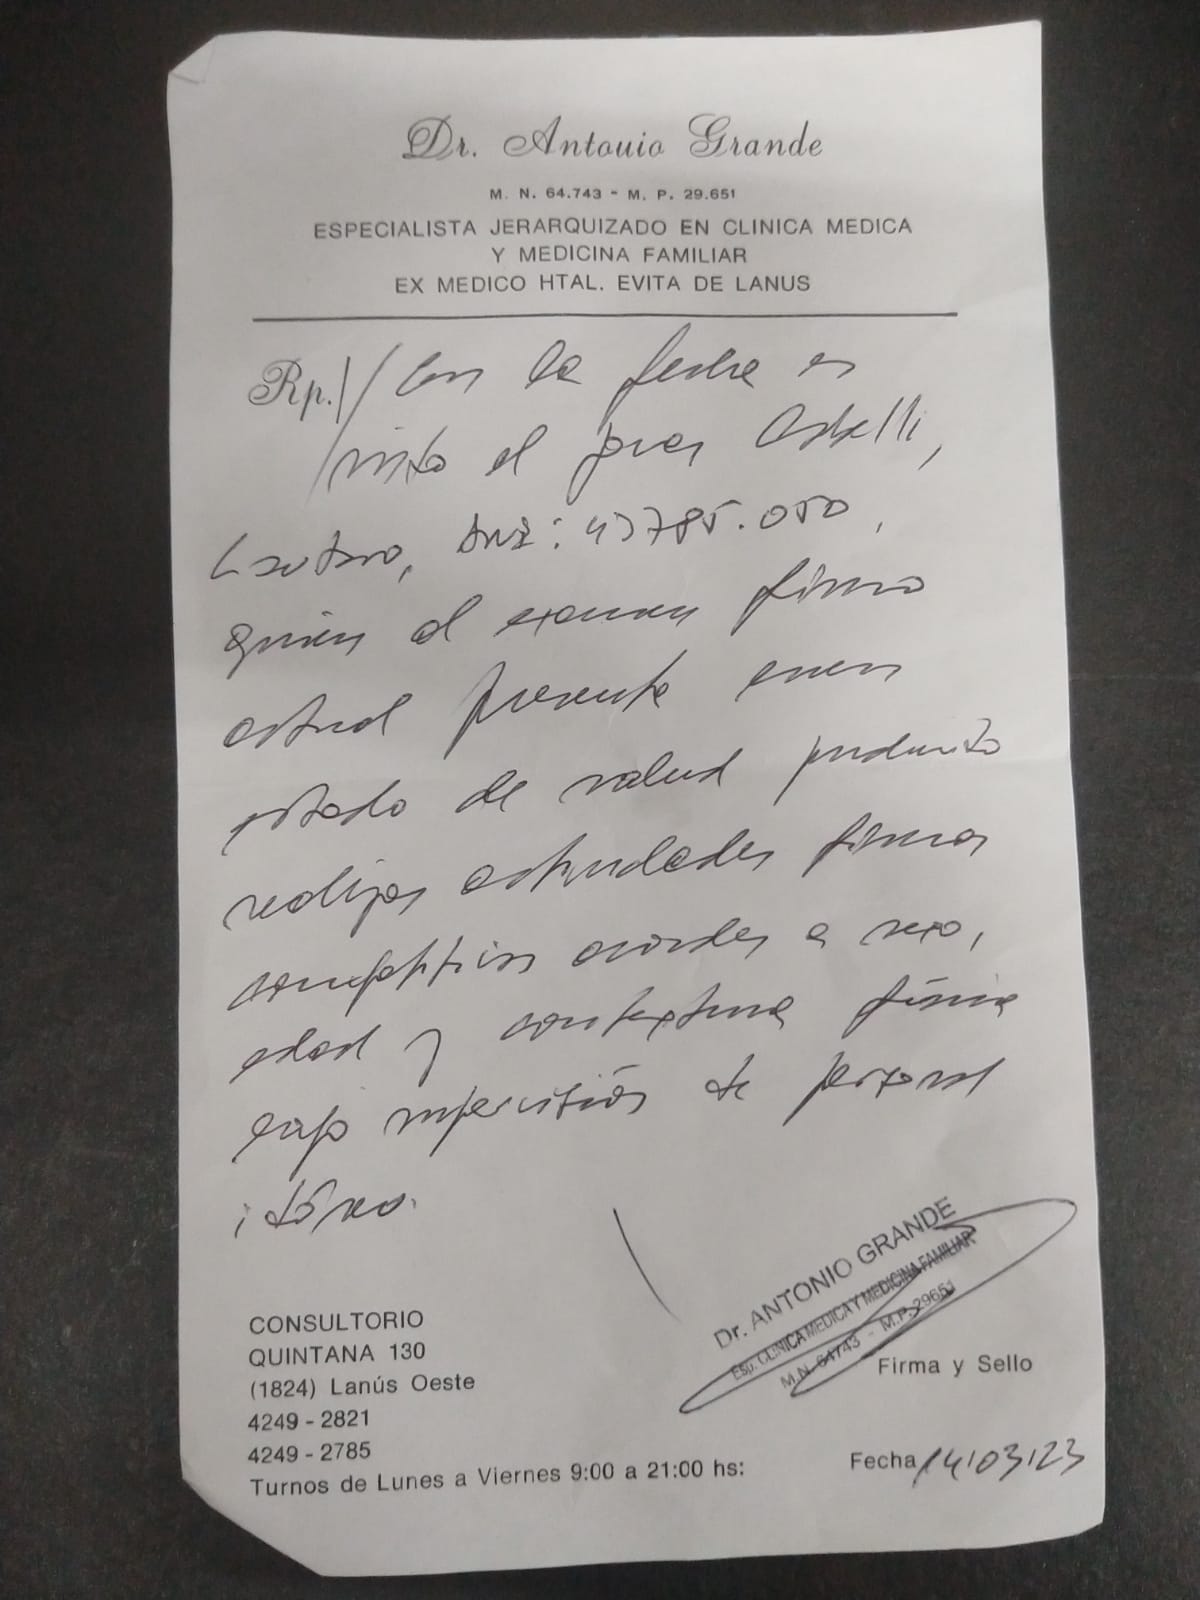 Dr. Antonio Grande
M. N. 64.743 - M. P. 29.651
ESPECIALISTA JERARQUIZADO EN CLINICA MEDICA
Y MEDICINA FAMILIAR
EX MEDICO HTAL. EVITA DE LANUS
Rp. Con la fecha es
visto el joven
Lautaro, DNI: 43785.050,
quien al examen físico
actual presenta buen
estado de salud pudiendo
realizar actividades físicas
competitivas acordes a sexo,
edad y contextura física
bajo supervisión de personal
idóneo.
Dr. ANTONIO GRANDE
Esp. CLINICA MEDICA Y MEDICINA FAMILIAR
M.N. 64743 - M.P. 29651
Firma y Sello
CONSULTORIO
QUINTANA 130
(1824) Lanús Oeste
4249 - 2821
4249 - 2785
Turnos de Lunes a Viernes 9:00 a 21:00 hs:
Fecha 14/03/23